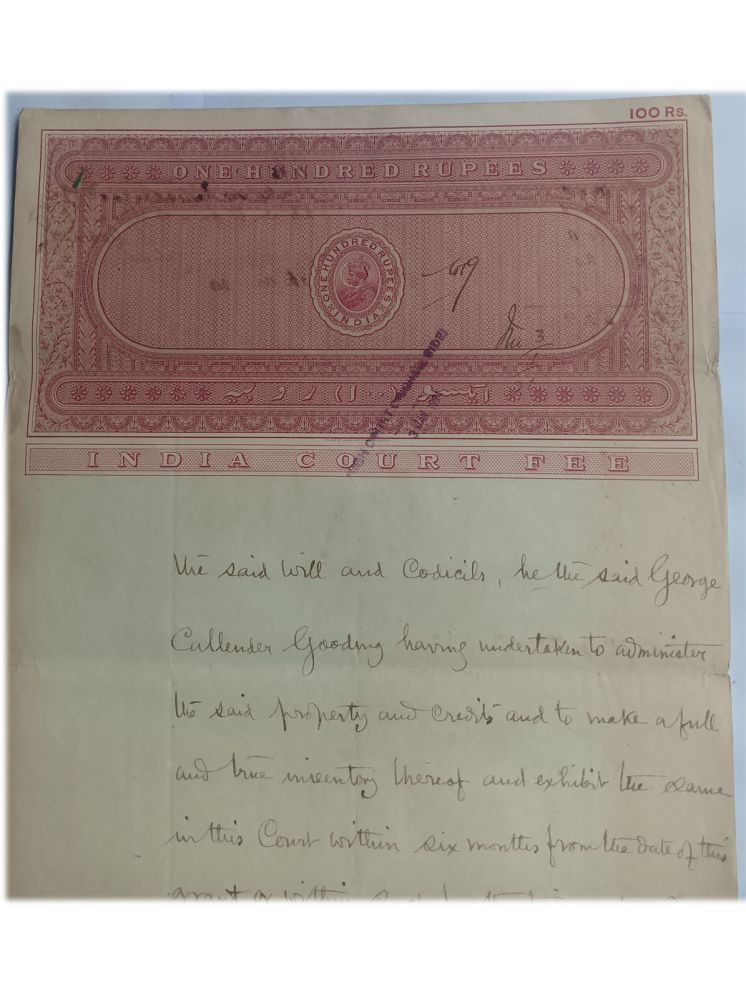 100 Rs.
ONE HUNDRED RUPEES
ONE HUNDRED RUPEES
INDIA
ایکسو (۱۰۰) روپیہ
INDIA COURT FEE
the said Will and Codicils, he the said George
Callender Gooding having undertaken to administer
the said property and credits and to make a full
and true inventory thereof and exhibit the same
in this Court within six months from the date of this
grant or within